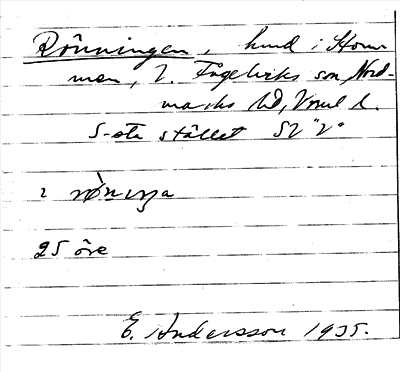 Rönningen, hmd i Hom
men, Ö. Fågelviks sn Nord-
marks hd, Vrml l.
5-öte stället SV "V"
i rø̀nıŋa
25 öre
E. Andersson 1935.